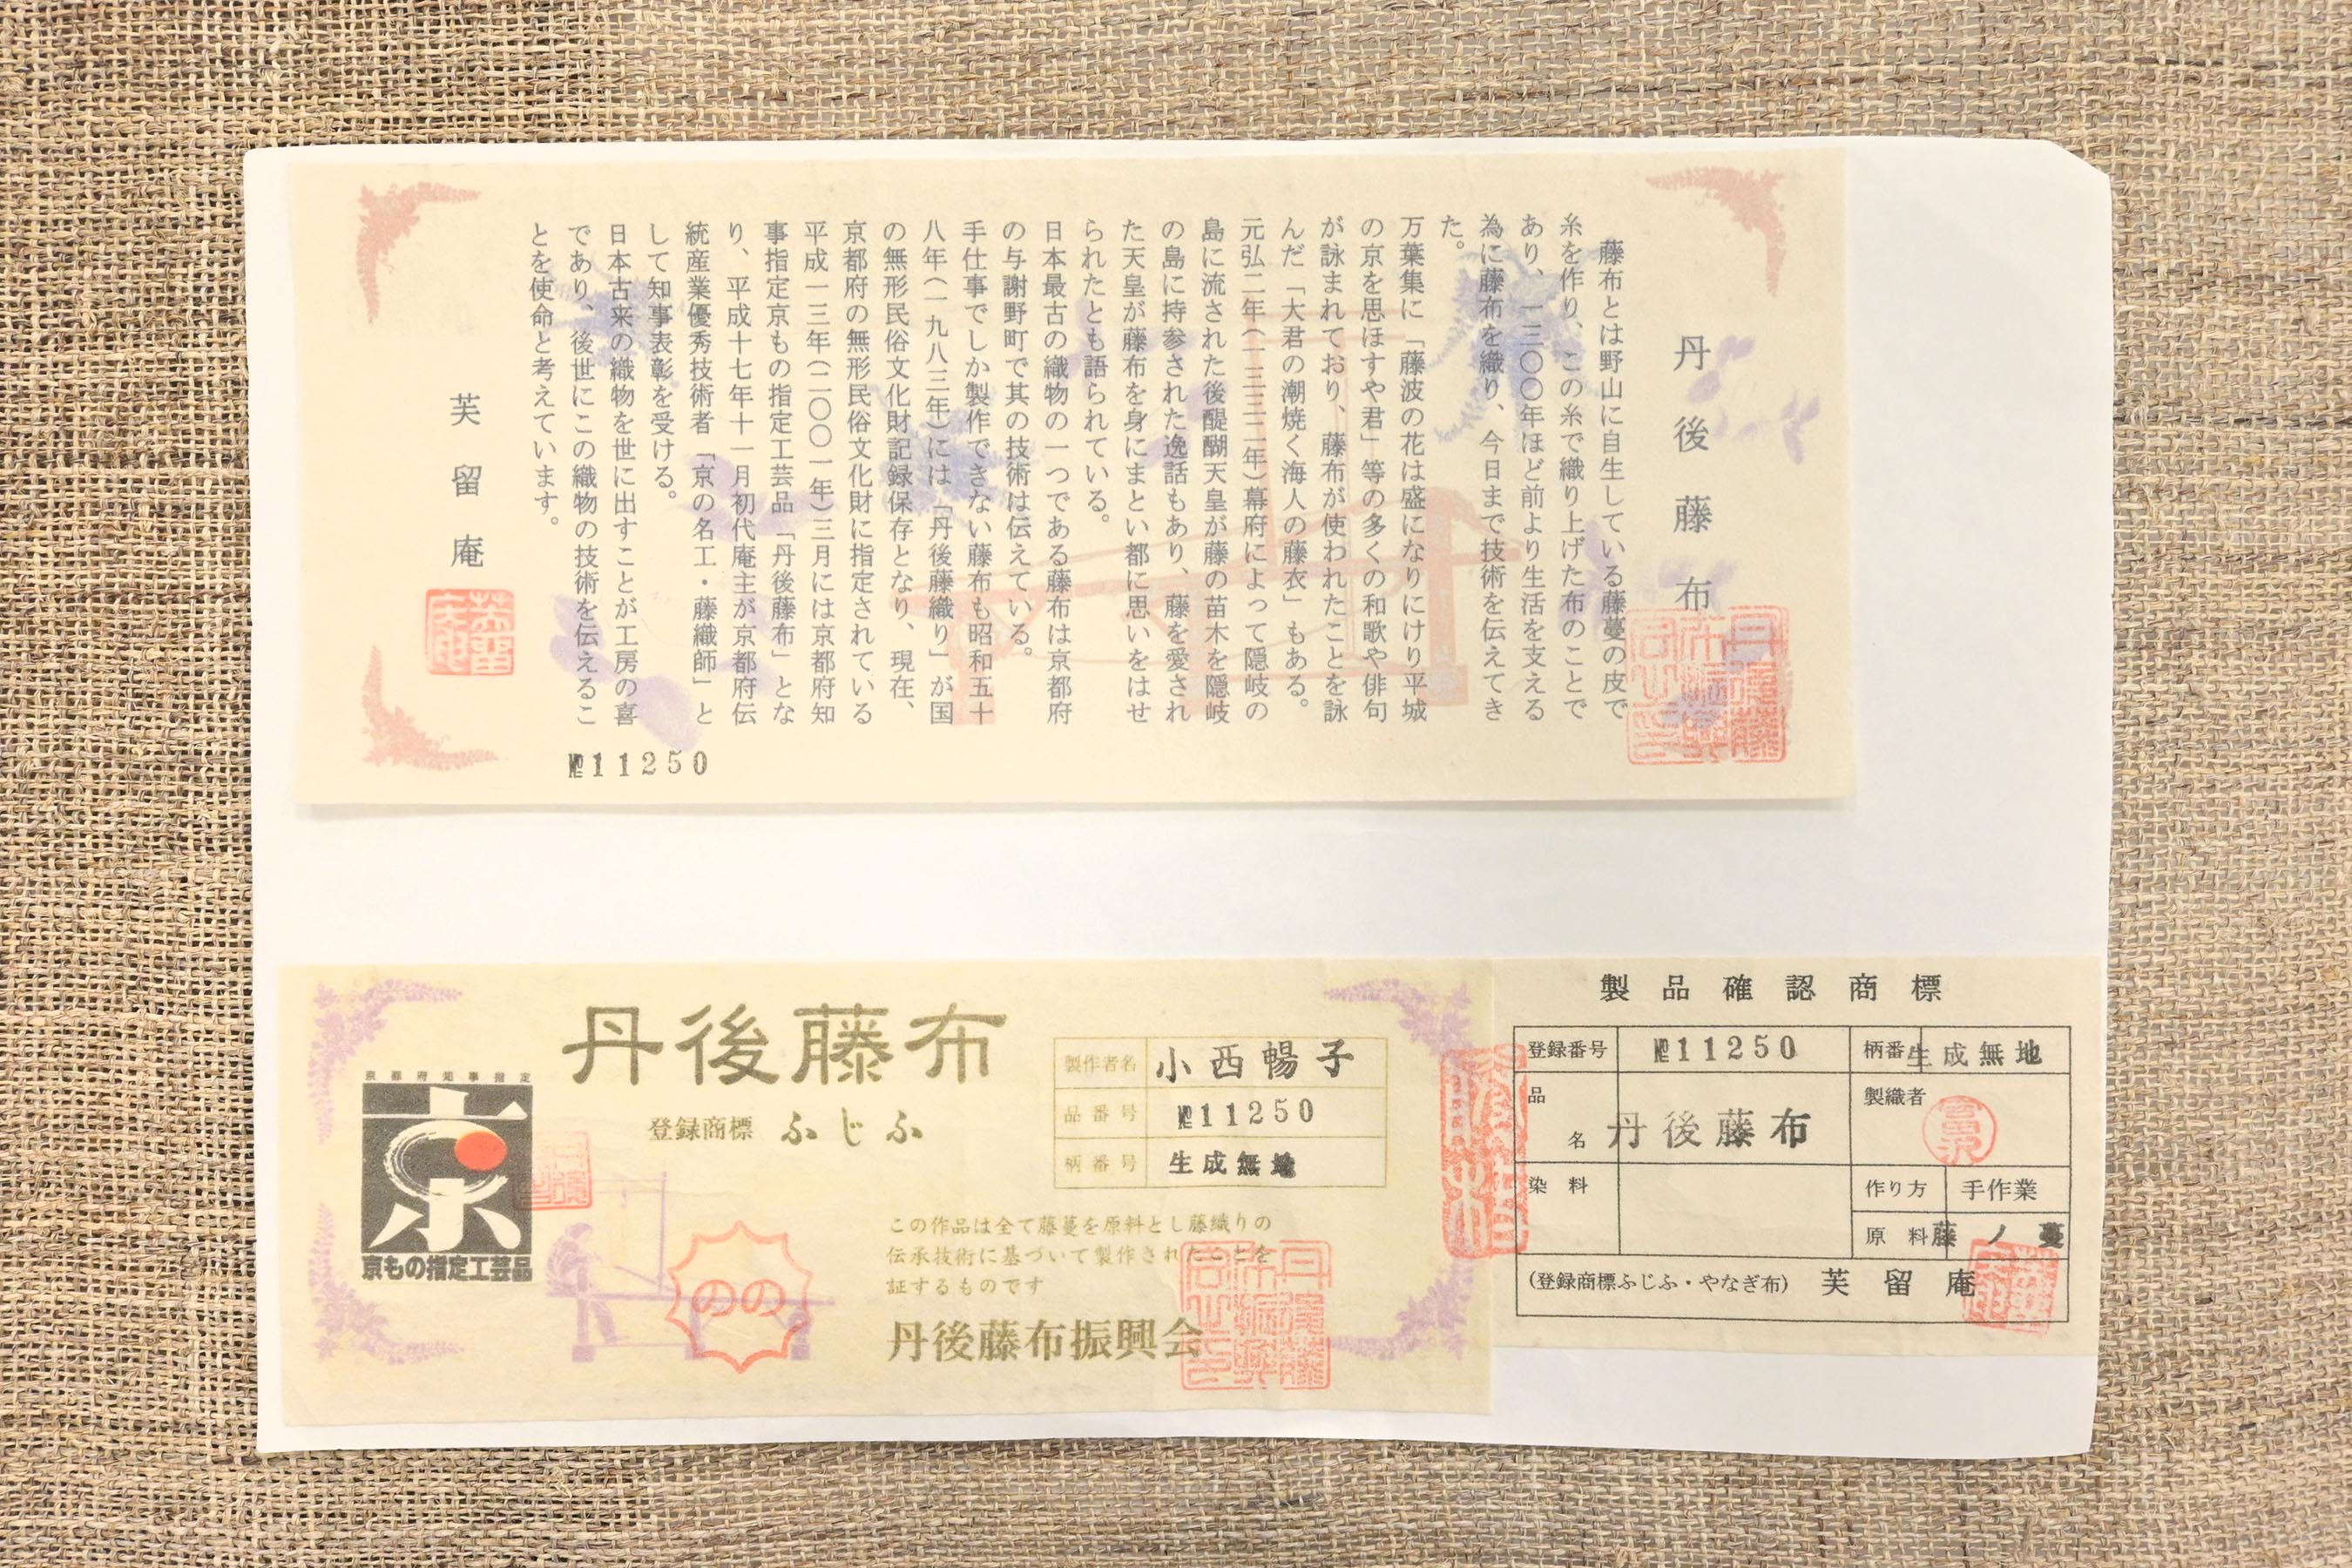 丹後藤布
藤布とは野山に自生している藤蔓の皮で
糸を作り、この糸で織り上げた布のことで
あり、一三〇〇年ほど前より生活を支える
為に藤布を織り、今日まで技術を伝えてき
た。
万葉集に「藤波の花は盛になりにけり平城
の京を思ほすや君」等の多くの和歌や俳句
が詠まれており、藤布が使われたことを詠
んだ「大君の潮焼く海人の藤衣」もある。
元弘二年(一三三二年)幕府によって隠岐の
島に流された後醍醐天皇が藤の苗木を隠岐
の島に持参された逸話もあり、藤を愛され
た天皇が藤布を身にまとい都に思いをはせ
られたとも語られている。
日本最古の織物の一つである藤布は京都府
の与謝野町で其の技術は伝えている。
手仕事でしか製作できない藤布も昭和五十
八年(一九八三年)には「丹後藤織り」が国
の無形民俗文化財記録保存となり、現在、
京都府の無形民俗文化財に指定されている
平成一三年(二〇〇一年)三月には京都府知
事指定京もの指定工芸品「丹後藤布」とな
り、平成十七年十一月初代庵主が京都府伝
統産業優秀技術者「京の名工・藤織師」と
して知事表彰を受ける。
日本古来の織物を世に出すことが工房の喜
であり、後世にこの織物の技術を伝えるこ
とを使命と考えています。
芙留庵
№11250
京都府知事指定
京
京もの指定工芸品
丹後藤布
登録商標 ふじふ
製作者名 小西暢子
品番号 №11250
柄番号 生成無地
この作品は全て藤蔓を原料とし藤織りの
伝承技術に基づいて製作されたことを
証するものです
丹後藤布振興会
のの
製品確認商標
登録番号 №11250 柄番 生成無地
品名 丹後藤布 製織者
染料 作り方 手作業
原料 藤ノ蔓
(登録商標ふじふ・やなぎ布) 芙留庵